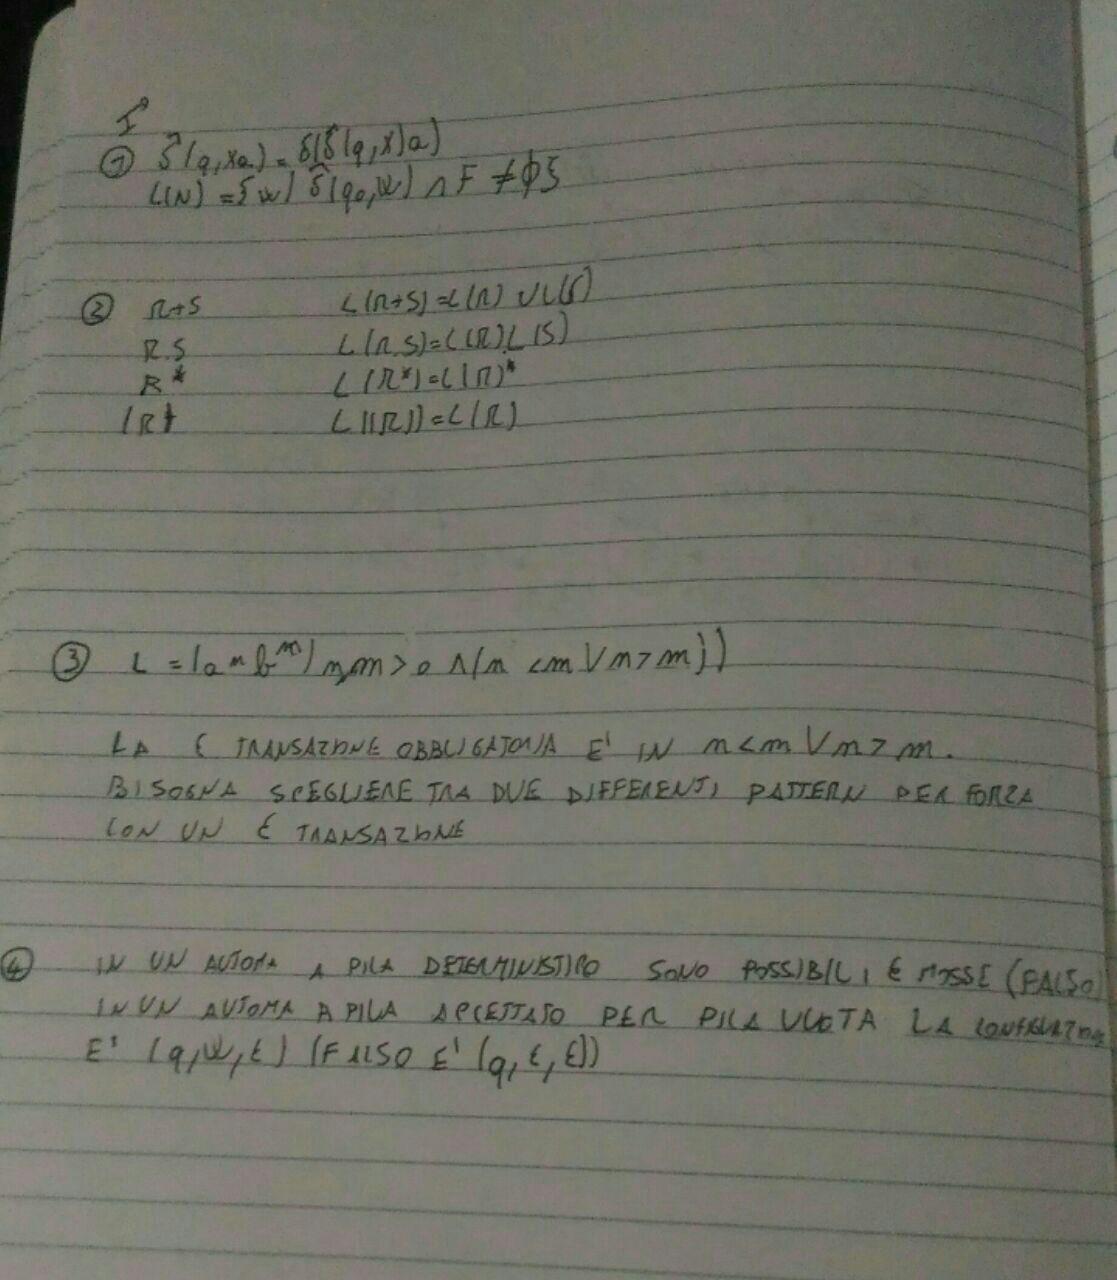 I°
① δ̂(q,xa) = δ(δ̂(q,x)a)
L(N) = {w | δ̂(q₀,w) ∩ F ≠ ϕ}
② R+S L(R+S)=L(R) ∪ L(S)
R.S L(R.S)=L(R).L(S)
R* L(R*)=L(R)*
(R) L((R))=L(R)
③ L = {aⁿbᵐ | n,m>0 ∧(n<m ∨ n>m)}
LA ε TRANSAZIONE OBBLIGATORIA E' IN n<m ∨ n>m.
BISOGNA SCEGLIERE TRA DUE DIFFERENTI PATTERN PER FORZA
CON UN ε TRANSAZIONE
④ IN UN AUTOMA A PILA DETERMINISTICO SONO POSSIBILI ε MOSSE (FALSO)
IN UN AUTOMA A PILA ACCETTATO PER PILA VUOTA LA
E' (q,w,ε) (FALSO E' (q,ε,ε))